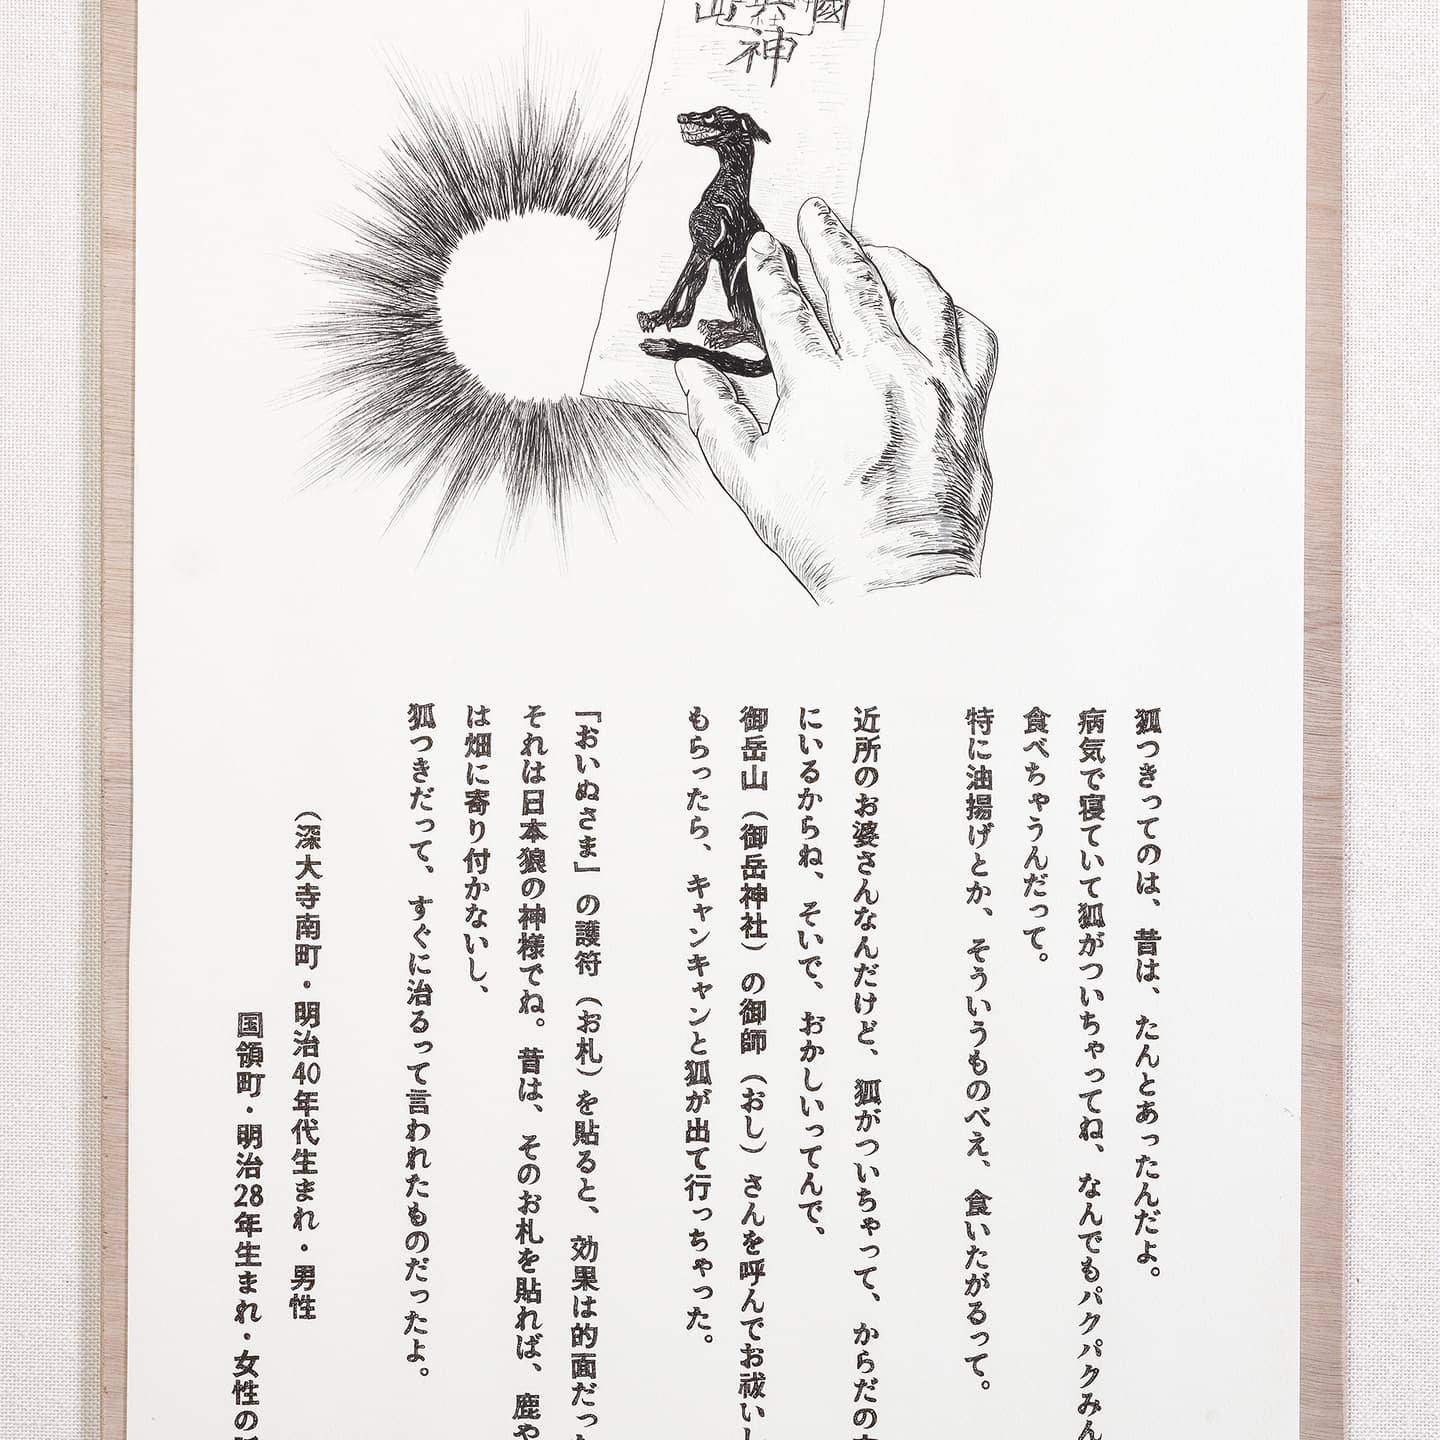 神
狐つきってのは、昔は、たんとあったんだよ。
病気で寝ていて狐がついちゃってね、なんでもパクパクみん
食べちゃうんだって。
特に油揚げとか、そういうものべえ、食いたがるって。
近所のお婆さんなんだけど、狐がついちゃって、からだの
にいるからね、そいで、おかしいってんで、
御岳山（御岳神社）の御師（おし）さんを呼んでお祓いし
もらったら、キャンキャンと狐が出て行っちゃった。
「おいぬさま」の護符（お札）を貼ると、効果は的面だっ
それは日本狼の神様でね。昔は、そのお札を貼れば、鹿や
は畑に寄り付かないし、
狐つきだって、すぐに治るって言われたものだったよ。
（深大寺南町・明治40年代生まれ・男性
国領町・明治28年生まれ・女性の